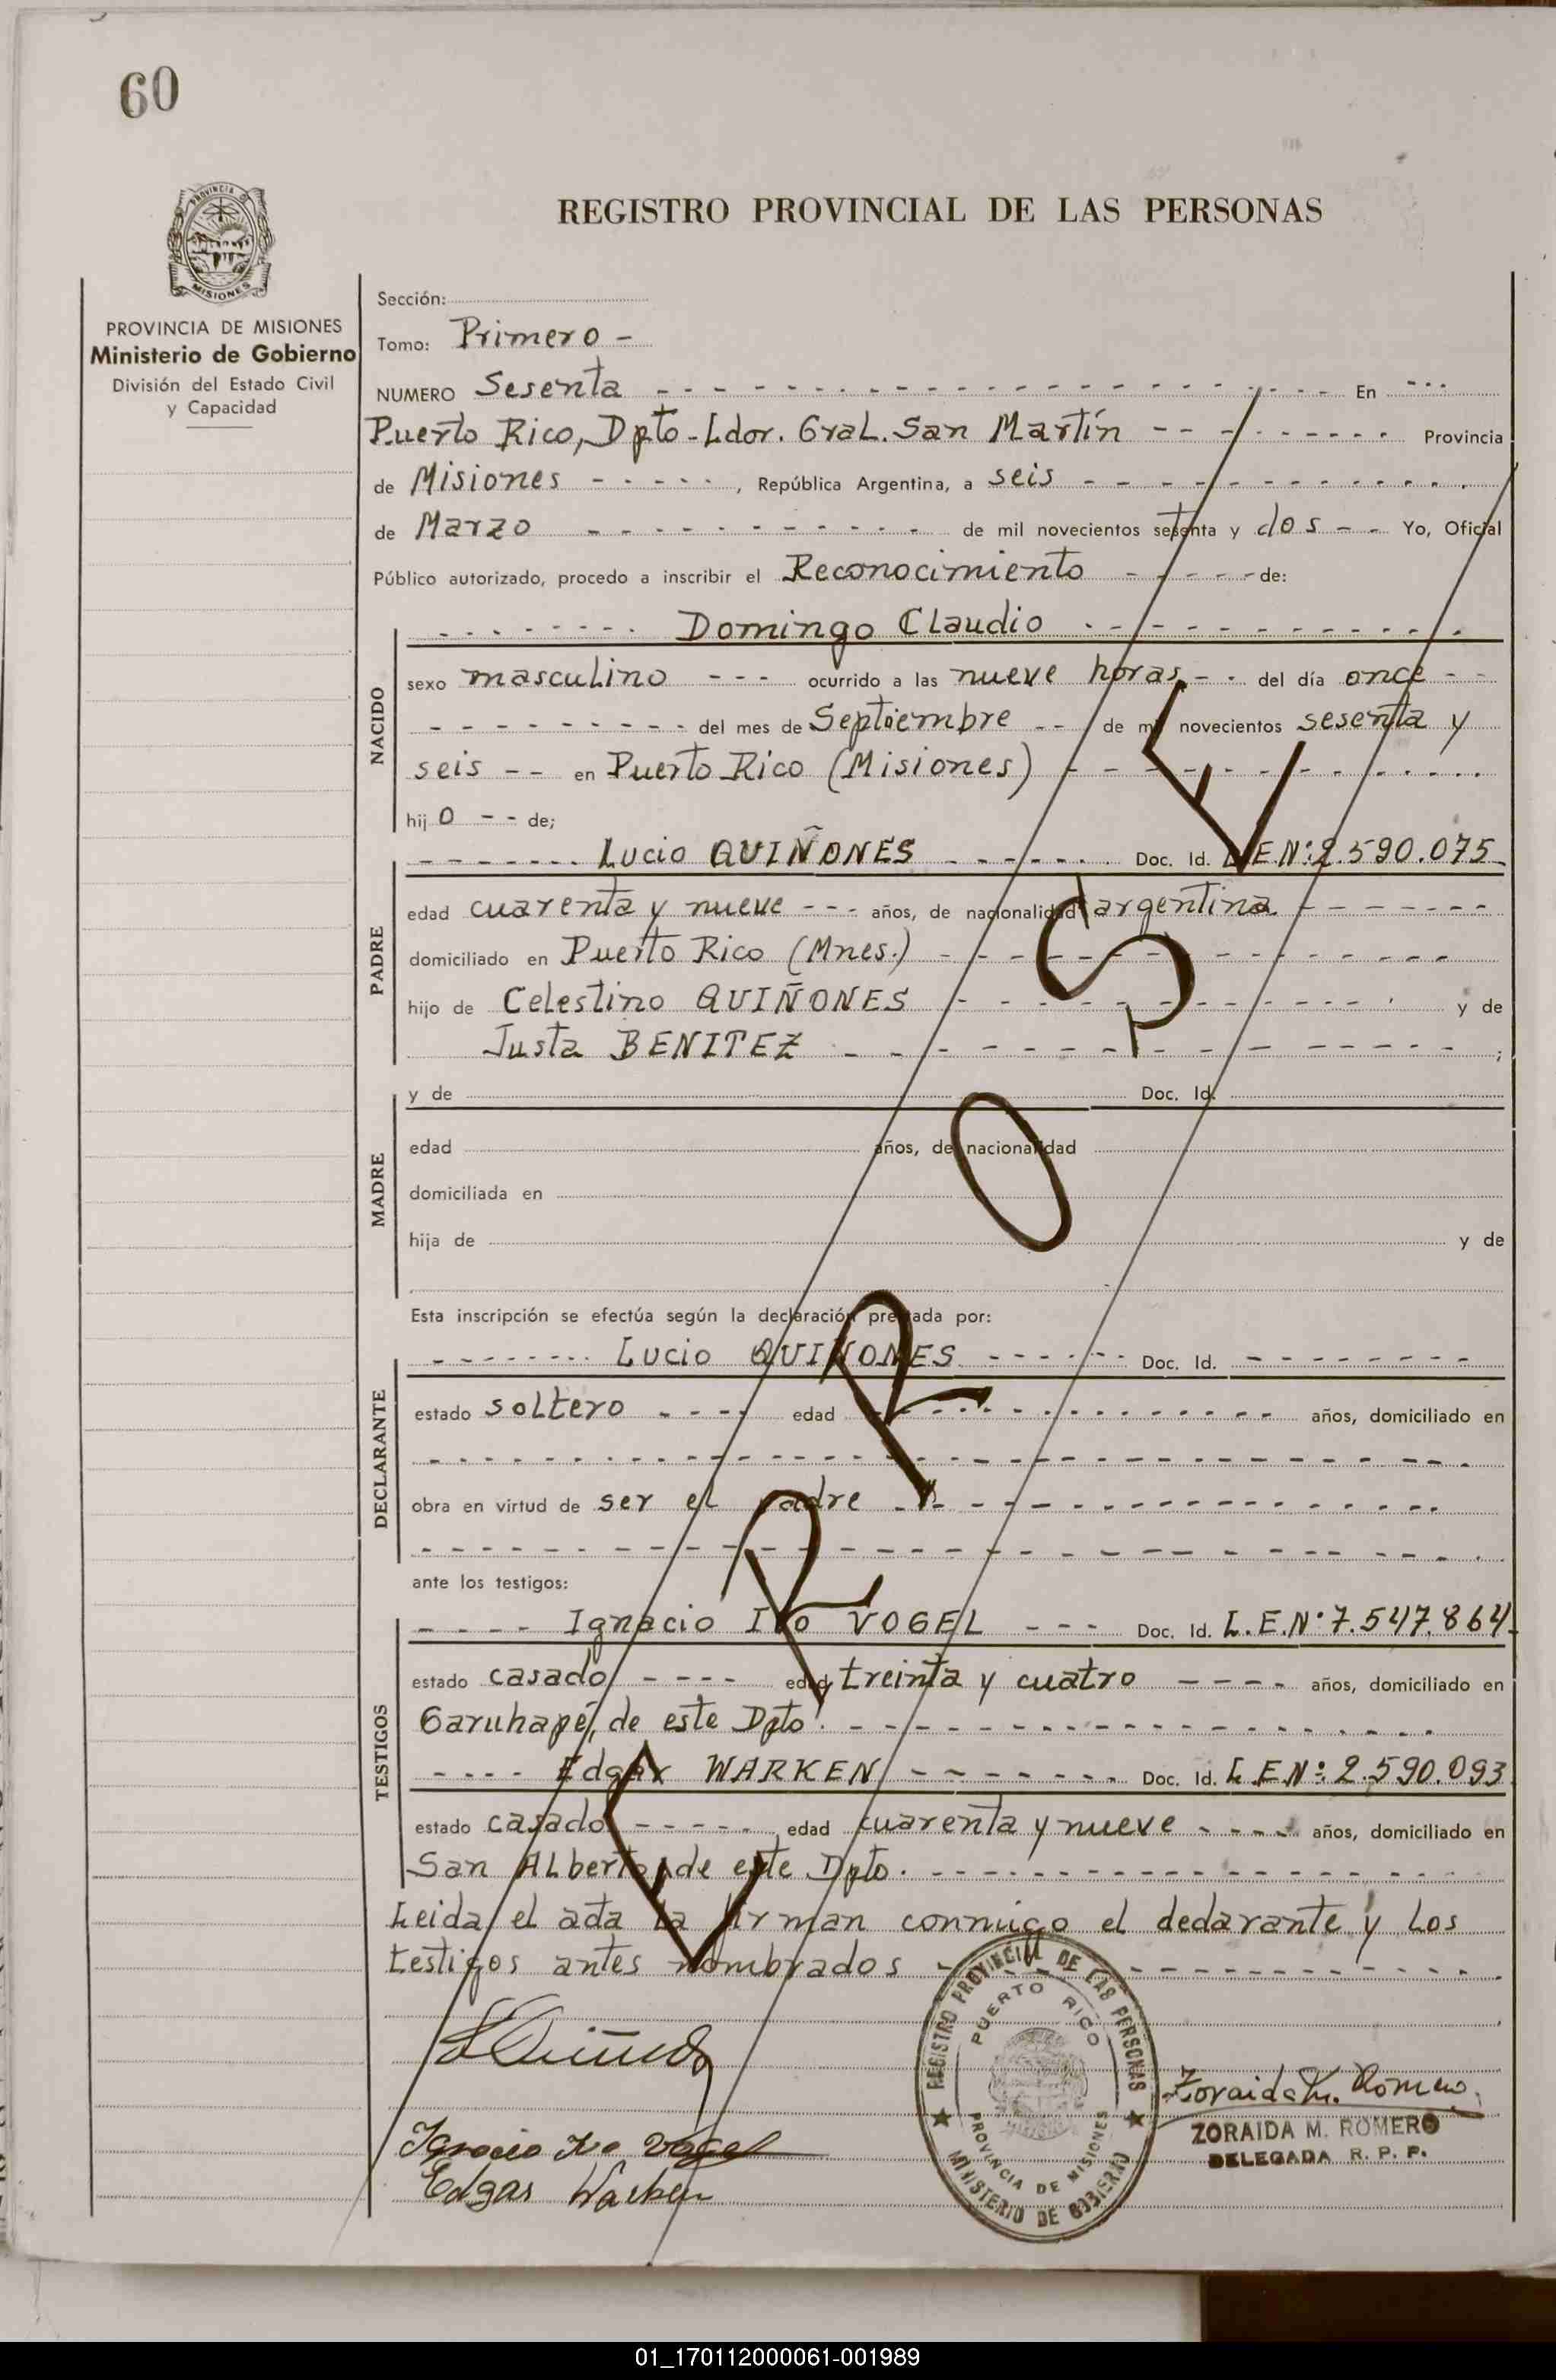 60
PROVINCIA
MISIONES
PROVINCIA DE MISIONES
Ministerio de Gobierno
División del Estado Civil
y Capacidad
REGISTRO PROVINCIAL DE LAS PERSONAS
Sección:
Tomo: Primero -
NUMERO Sesenta - - - En - - -
Puerto Rico, Dpto - Ldor. Gral. San Martín - - - Provincia
de Misiones - - - , República Argentina, a seis - - -
de Marzo - - - de mil novecientos setenta y dos - - Yo, Oficial
Público autorizado, procedo a inscribir el Reconocimiento - - - de:
NACIDO
- - - Domingo Claudio - - -
sexo masculino - - - ocurrido a las nueve horas - - del día once - -
- - - del mes de Septiembre - - de mil novecientos sesenta y
seis - - en Puerto Rico (Misiones) - - -
hijo - - de;
PADRE
- - - Lucio QUIÑONES - - - Doc. Id. L.E.Nº:2.590.075
edad cuarenta y nueve - - - años, de nacionalidad argentina - - -
domiciliado en Puerto Rico (Mnes.) - - -
hijo de Celestino QUIÑONES - - - y de
Justa BENITEZ - - - ;
MADRE
y de Doc. Id.
edad años, de nacionalidad
domiciliada en
hija de y de
Esta inscripción se efectúa según la declaración prestada por:
DECLARANTE
- - - Lucio QUIÑONES - - - Doc. Id. - - -
estado soltero - - - edad - - - años, domiciliado en
- - -
obra en virtud de ser el padre - - -
- - -
ante los testigos:
TESTIGOS
- - - Ignacio Ivo VOGEL - - - Doc. Id. L.E.Nº 7.547.864
estado casado - - - edad treinta y cuatro - - - años, domiciliado en
Garuhapé, de este Dpto. - - -
- - - Edgar WARKEN - - - Doc. Id. L.E.Nº: 2.590.093
estado casado - - - edad cuarenta y nueve - - - años, domiciliado en
San Alberto, de este Dpto. - - -
Leida el acta la firman conmigo el declarante y los
testigos antes nombrados - - -
ERROSE
LQuiñones
Ignacio Ivo Vogel
Edgar Warken
REGISTRO PROVINCIAL DE LAS PERSONAS
PUERTO RICO
PROVINCIA DE MISIONES
MINISTERIO DE GOBIERNO
Zoraida M. Romero
ZORAIDA M. ROMERO
DELEGADA R. P. P.
01_170112000061-001989